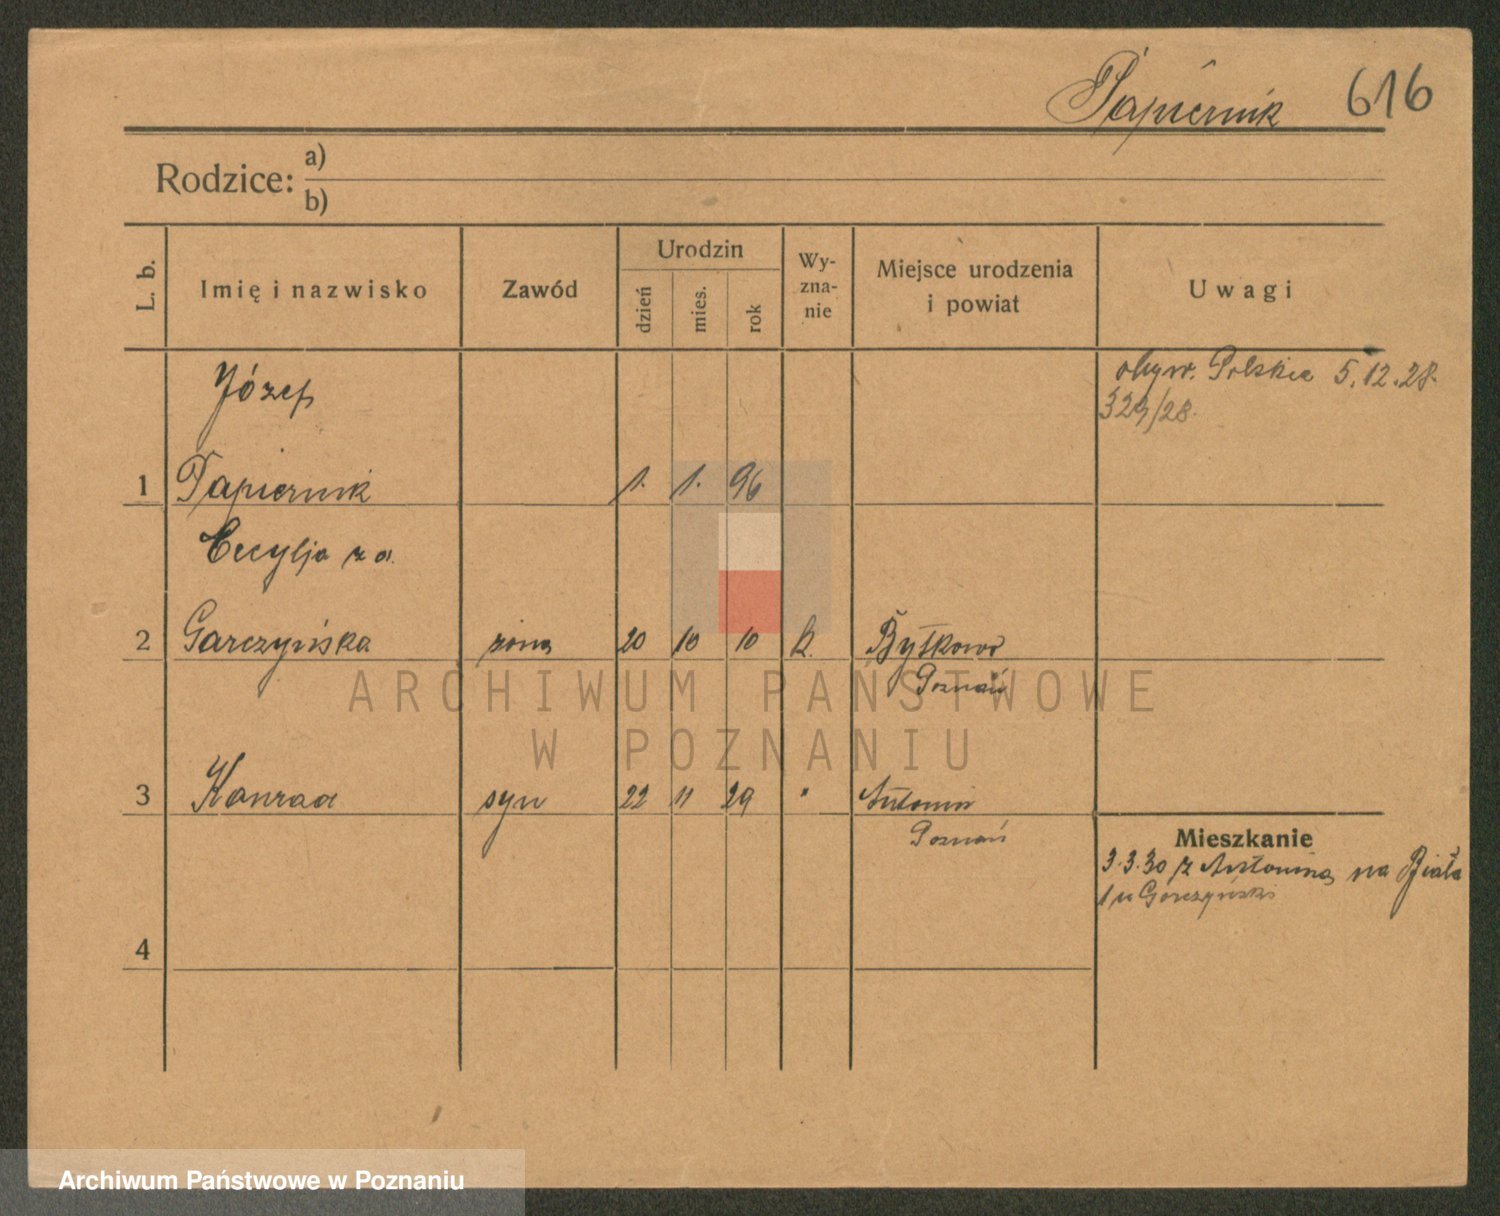 Papiernik 616
Rodzice: a)
b)
L. b.
Imię i nazwisko
Zawód
Urodzin
dzień
mies.
rok
Wy-
zna-
nie
Miejsce urodzenia
i powiat
Uwagi
Józef
obyw. Polskie 5.12.28.
329/28.
1 Papiernik 1. 1. 96
Cecylja z d.
2 Garczyńska żona 20 10 10 k. Bytkowo
Poznań
ARCHIWUM PAŃSTWOWE
W POZNANIU
3 Konrad syn 22 11 29 " Antonin
Poznań
Mieszkanie
3.3.30 z Antonina na Biała
1 u Gorczyński
4
Archiwum Państwowe w Poznaniu